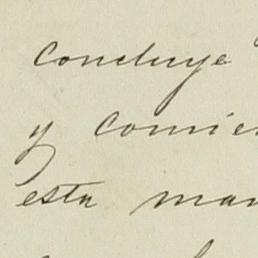 concluye
y comien
esta man